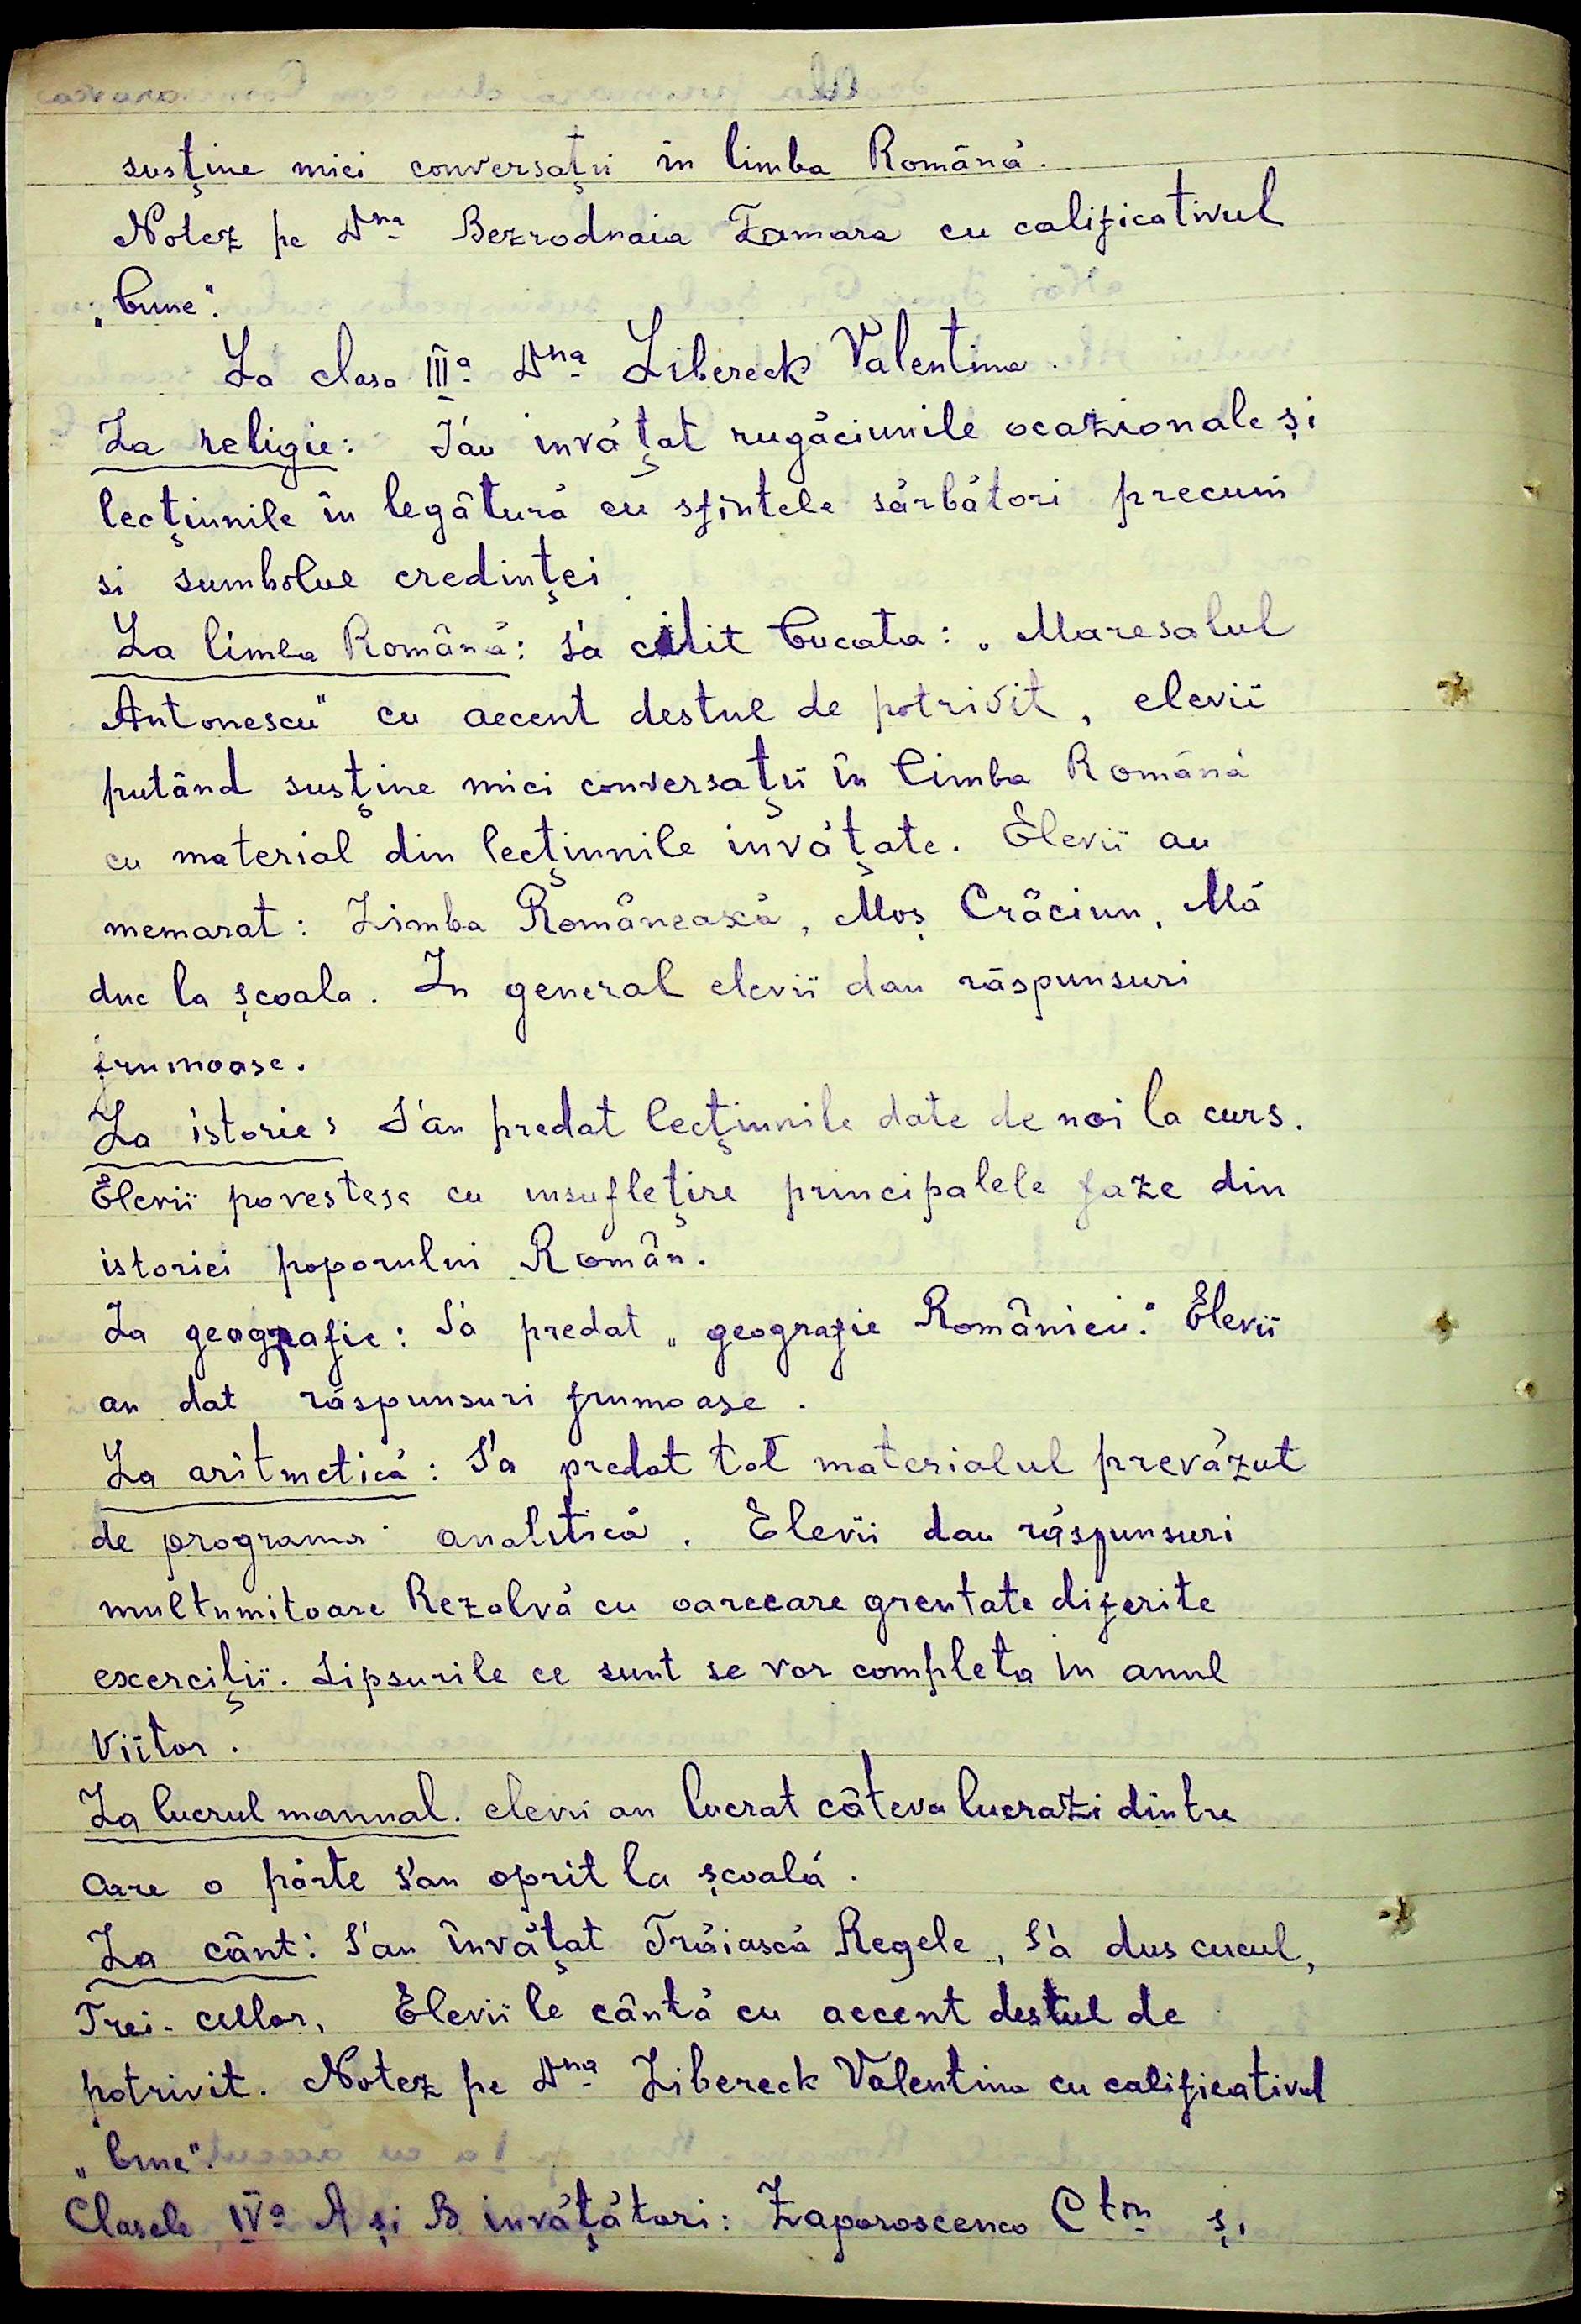 susține mici conversații în limba Română.
Notez pe Dna Bezrodnaia Tamara cu calificativul
„bune".
La clasa IIIa Dna Libereck Valentina.
La religie: S'au invățat rugăciunile ocazionale și
lecțiunile în legătură cu sfintele sărbători precum
si sumbolul credinței
La limba Română: s'a citit bucata: „Maresalul
Antonescu" cu accent destul de potrivit, elevii
putând susține mici conversații în limba Română
cu material din lecțiunile invățate. Elevii au
memarat: Limba Românească, Moș Crăciun, Mă
duc la școala. In general elevii dau răspunsuri
frumoase.
La istorie: S'au predat lecțiunile date de noi la curs.
Elevii povestesc cu insuflețire principalele faze din
istoriei poporului Român.
La geografie: S'a predat „geografie României." Elevii
au dat răspunsuri frumoase.
La aritmetică: S'a predat tot materialul prevăzut
de programa analitică. Elevii dau răspunsuri
multumitoare Rezolvă cu oarecare greutate diferite
exerciții. Lipsurile ce sunt se vor completa în anul
viitor.
La lucrul manual. elevii au lucrat câteva lucrazi dintre
care o parte s'au oprit la școală.
La cânt: S'au învățat Trăiască Regele, S'a dus cucul,
Trei culor, Elevii le cântă cu accent destul de
potrivit. Notez pe Dna Libereck Valentina cu calificativul
„bune".
Clasele IVa A și B invățători: Zaporoscenco Ctin și